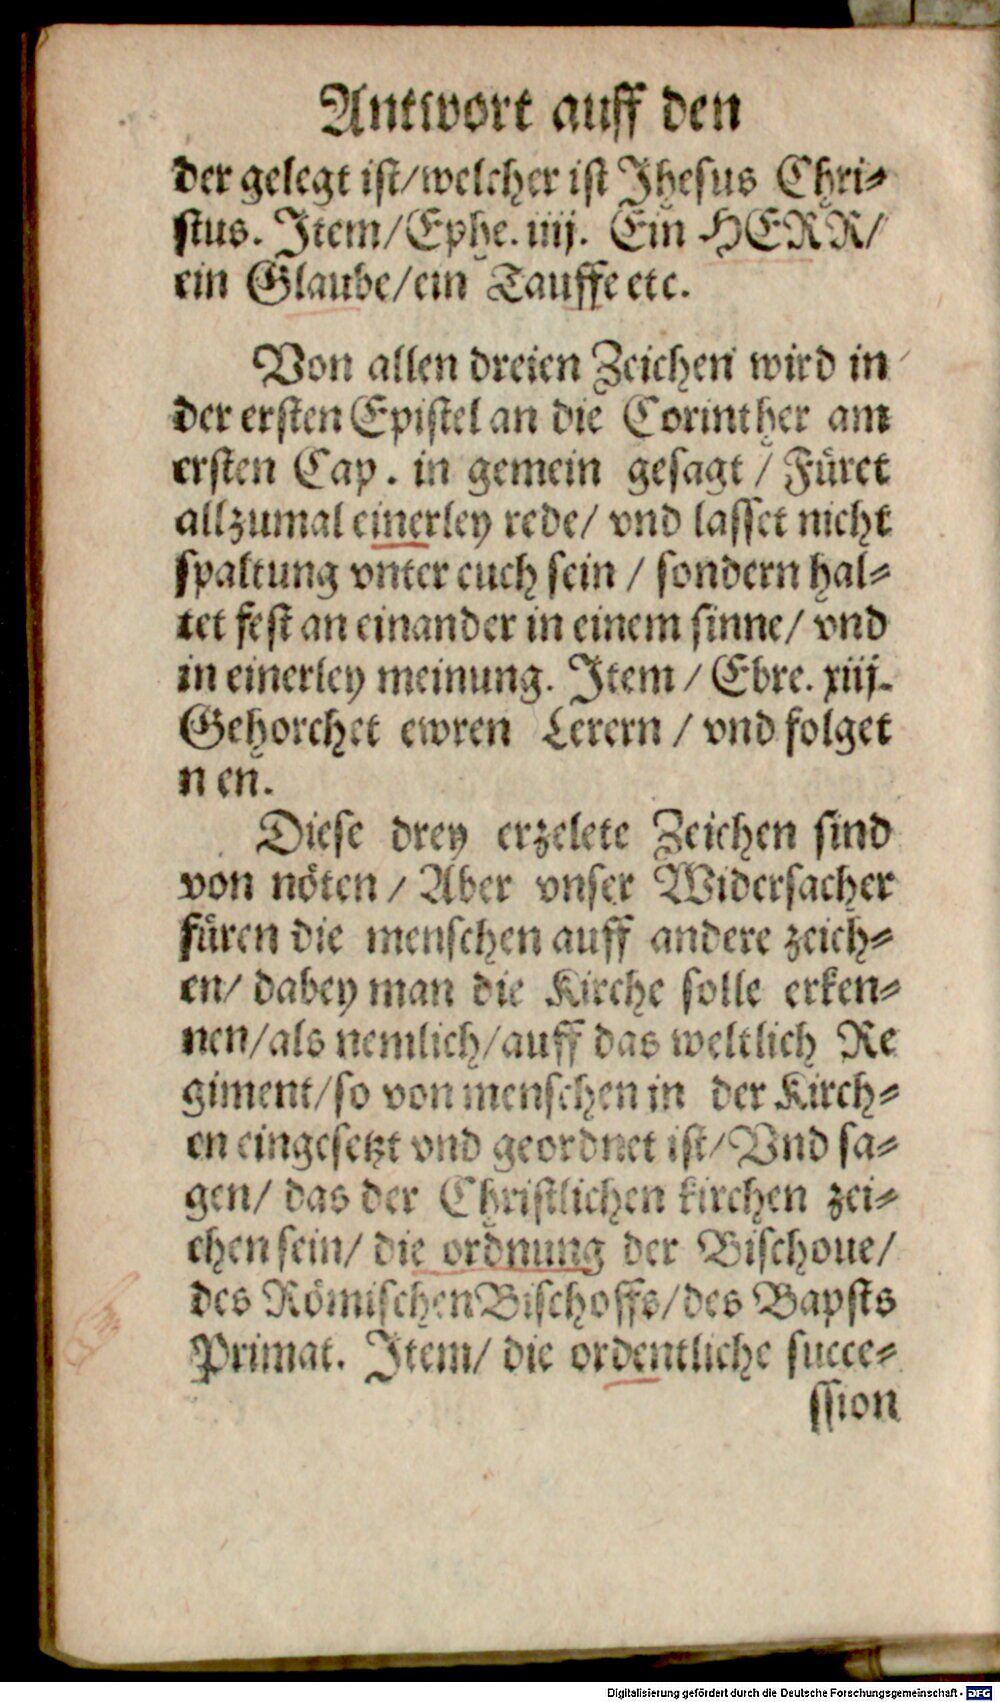 Antwort auff den
der gelegt ist/welcher ist Jhesus Chri-
stus. Item/Ephe. iiij. Ein HERR/
ein Glaube/ein Tauffe etc.
Von allen dreien Zeichen wird in
der ersten Epistel an die Corinther am
ersten Cap. in gemein gesagt / Füret
allzumal einerley rede/ vnd lasset nicht
spaltung vnter euch sein / sondern hal-
tet fest an einander in einem sinne/ vnd
in einerley meinung. Item / Ebre. xiij.
Gehorchet ewren Lerern / vnd folget
n en.
Diese drey erzelete Zeichen sind
von nöten / Aber vnser Widersacher
füren die menschen auff andere zeich-
en/ dabey man die Kirche solle erken-
nen/als nemlich/auff das weltlich Re
giment/so von menschen in der Kirch-
en eingesetzt vnd geordnet ist/Vnd sa-
gen/ das der Christlichen kirchen zei-
chen sein/ die ordnung der Bischoue/
des Römischen Bischoffs/des Bapsts
Primat. Item/ die ordentliche succe-
ssion
Digitalisierung gefördert durch die Deutsche Forschungsgemeinschaft - DFG